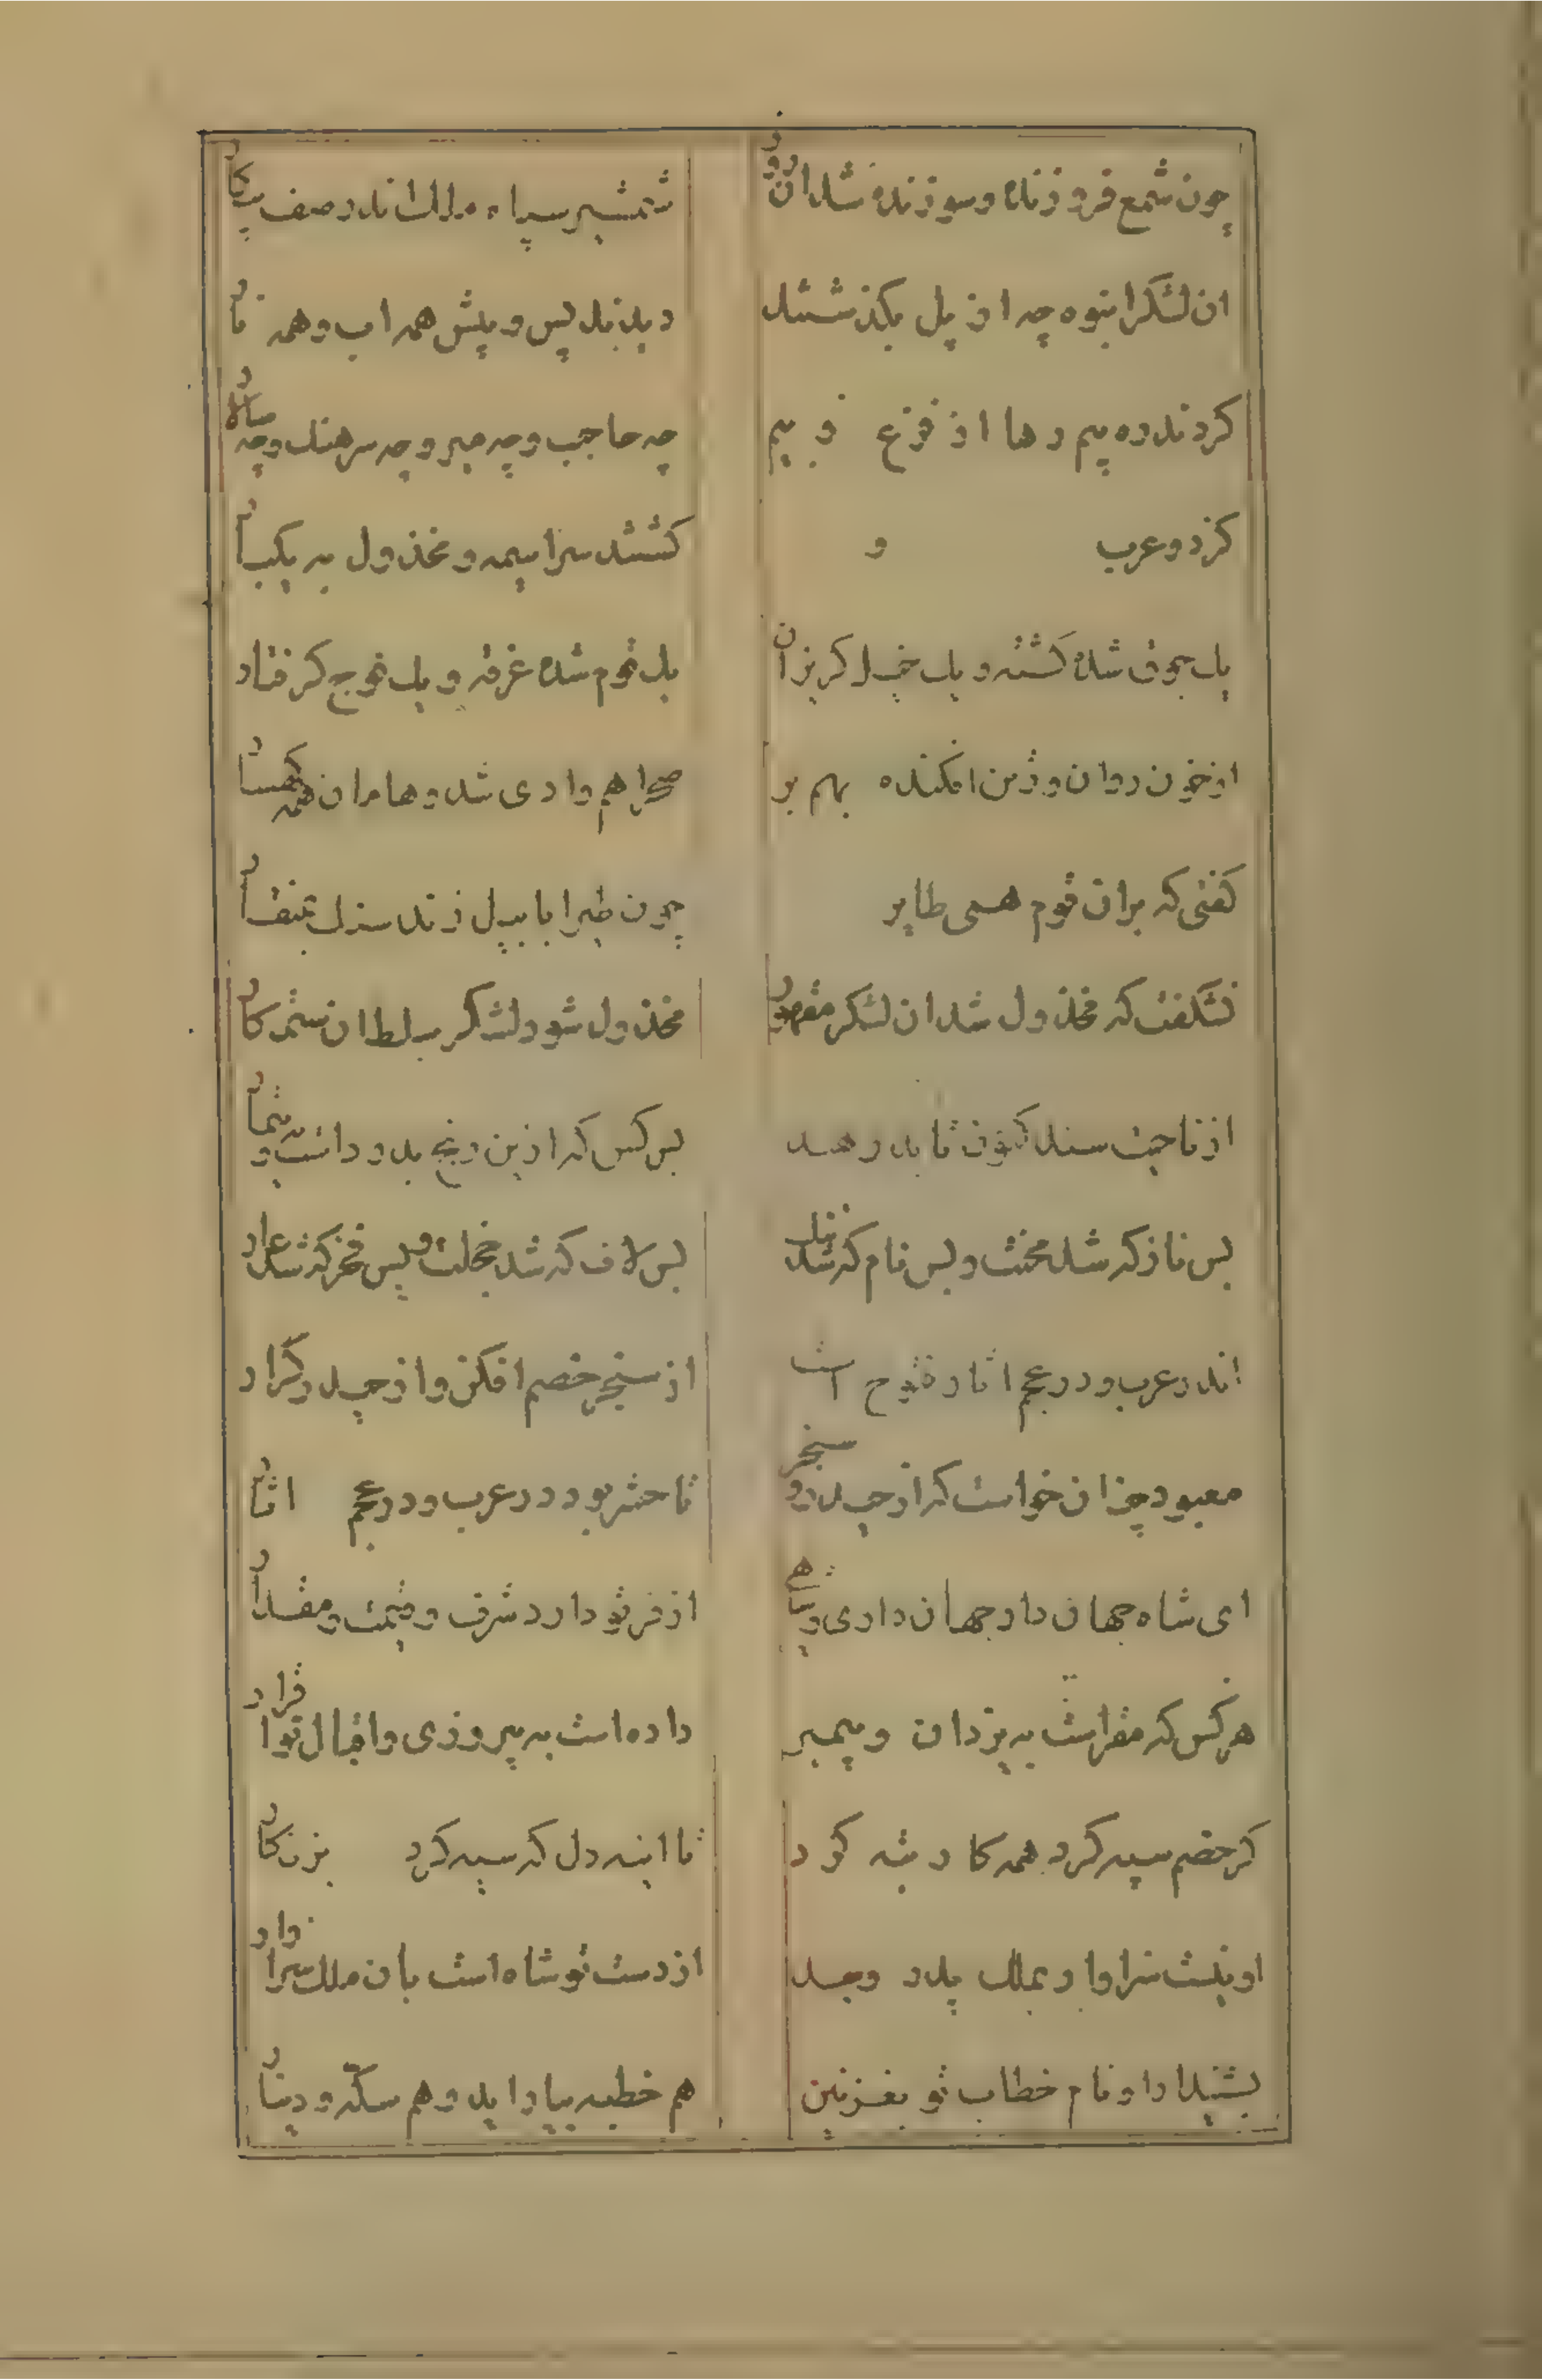 چون شمع فروزنده و سوزنده شد ان روز
شمشیر سپاه ملک اندر صف پیکار
ان لشکر انبوه چه از پل بگذشتند
دیدند پس و پیش همه اب و همه نار
کردند دهم رها از فزع و بیم
چه حاجب و چه میر و چه سرهنگ و چه سالار
کرد و عرب و
کشتند سراسیمه و مخذول به یکبار
یک جوق شده کشته و یک خیل گریزان
یک قوم شده غرقه و یک فوج گرفتار
از خون روان و ز تن افکنده بهم بر
صحرا هم وادی شد و هامان همه کهسار
گفتی که بران قوم همی طایر
چون طیر ابابیل زند سنگ بمنقار
نشگفت که مخذول شد ان لشکر مقهور
مخذول شود لشکر سلطان ستمکار
از ناحیت سند کنون تا بدر هند
بس کس که ازین رنج بدرد است و به تیمار
بس ناز که شد محنت و بس نام که شد ننگ
بس لاف که شد خجلت و بس فخر که شد عار
اندر عرب و در عجم اثار فتوح است
از سنجر خصم افکن و از حیدر کرار
معبود چنان خواست که از حیدر و سنجر
تا حشر بود در عرب و در عجم اثار
ای شاه جهان دار جهان داری و شاهی
از فر تو دارد شرف و قیمت و مقدار
هر کس که مقر است به یزدان و پیمبر
داده است به پیروزی و اقبال تو اقرار
گر خصم سیه کرد همه کار تبه کرد
تا اینه دل که سیه کرد بزنگار
او نیست سزاوار بملک پدر و جد
از دست تو شاه است بان ملک سزاوار
بشنید را و نام خطاب تو بغزنین
هم خطبه بیاراید و هم سکّه و دینار